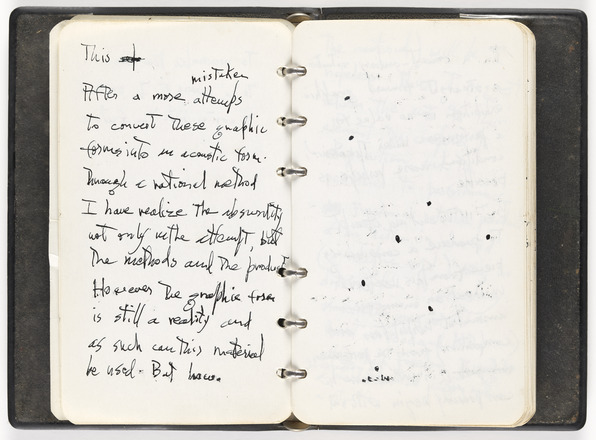 This
mistaken
After a more attemps
to convert these graphic
forms into an acoustic form.
Through a rational method
I have realize the absurdity
not only in the attempt, but
the methods and the product
However the graphic form
is still a reality and
as such can this material
be used. But how.